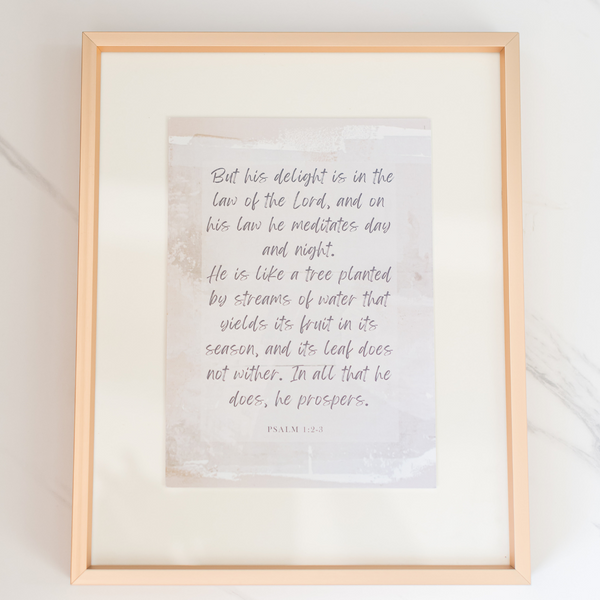 But his delight is in the
law of the Lord, and on
his law he meditates day
and night.
He is like a tree planted
by streams of water that
yields its fruit in its
season, and its leaf does
not wither. In all that he
does, he prospers.
PSALM 1:2-3